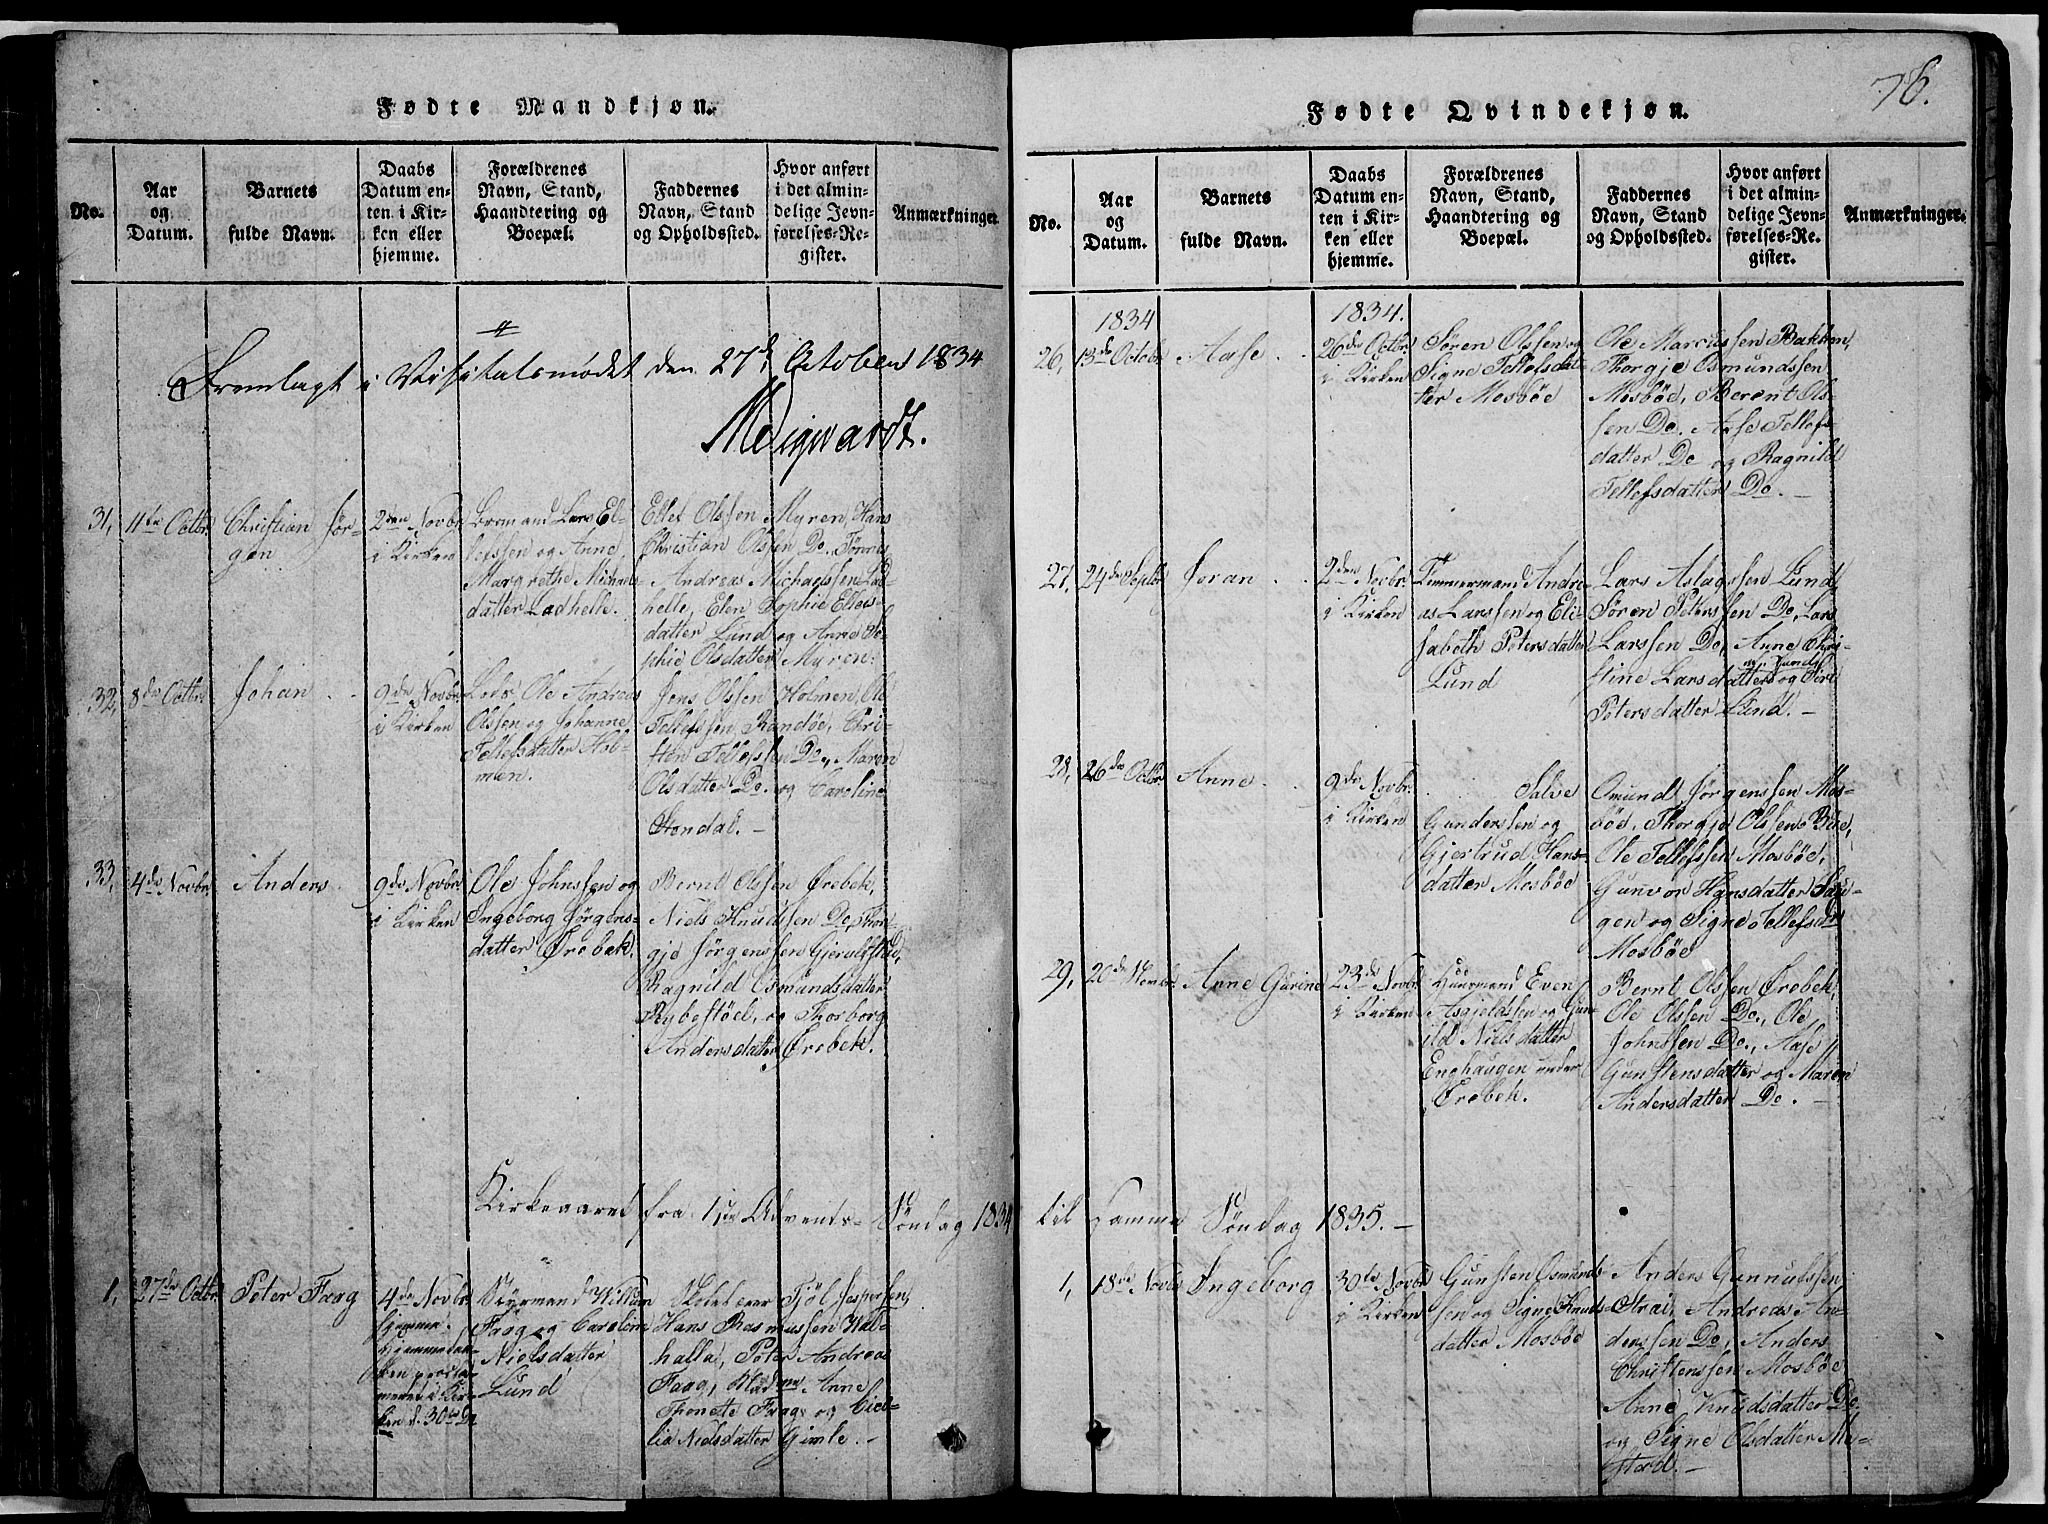 Fødte Mandkjøn.
No.
Aar
og
Datum.
Barnets
fulde Navn.
Daabs
Datum en-
ten i Kir-
ken eller
hjemme.
Forældrenes
Navn, Stand,
Haandtering og
Boepæl.
Faddernes
Navn, Stand
og Opholdssted.
Hvor anført
i det almin-
delige Jevn-
førelses-Re-
gister.
Anmærkninger.
Fremlagt i Visitatsmødet den 27de October 1834
31, 11te Octbr.
Christian Jør-
gen
2den Novbr.
i Kirken
Lars El-
lefssen og Anne
Margrethe Michaels-
datter Ladhelle.
Ellef Olssen Myren, Hans
Christian Olssen Do., Tønnes
Andreas Michaelssen Lad-
helle, Elen Sophie Ellefs-
datter Lund og Anne So-
phie Olsdatter Myren.
32, 8de Octbr.
Johan
9de Novbr.
i Kirken
Lods Ole Andreas
Olssen og Johanne
Tellefsdatter Hol-
men.
Jens Olssen Holmen, Ole
Tellefssen Randøe, Chri-
sten Tellefssen Do., Maren
Olsdatter Do. og Caroline
Stendal. -
33, 4de Novbr.
Anders
9de Novbr.
i Kirken
Ole Johnssen og
Ingeborg Jørgens-
datter Ørebek.
Bernt Olssen Ørebek,
Niels Knudssen Do., Thor-
gje Jørgenssen Gjervolstad,
Ragnild Osmundsdatter
Rybestöel, og Thorborg
Andersdatter Ørebek.
Kirkeaaret fra 1ste Advents-Søndag 1834
1, 27de Octbr.
Peter Faag
4de Novbr.
hjemme.
Hjemmedaa-
ben procla-
meret i Kir-
ken d. 30te Do
Styrmand Willum
Faag og Caroline
Nielsdatter
Lund
Skolelærer Fjöl Jespersen,
Hans Rasmussen Wal-
halla, Peter Andreas
Faag, Madme Anne
Thonete Faag og Cici-
lia Nielsdatter Gimle. -
76.
Fødte Qvindekjøn.
No.
Aar
og
Datum.
Barnets
fulde Navn.
Daabs
Datum en-
ten i Kir-
ken eller
hjemme.
Forældrenes
Navn, Stand,
Haandtering og
Boepæl.
Faddernes
Navn, Stand
og Opholdssted.
Hvor anført
i det almin-
delige Jevn-
førelses-Re-
gister.
Anmærkninger.
1834
1834.
26, 13de Octobr
Aase
26de Octbr.
i Kirken
Søren Olssen og
Signe Tellefsdat-
ter Mosbøe
Ole Marcussen Bakken,
Thorgje Osmundssen
Mosbøe, Berent Ols-
sen Do. Aase Tellefs-
datter Do og Ragnild
Tellefsdatter Do. -
27, 24de Septbr
Joran
2den Novbr.
i Kirken
Tømmermand Andre-
as Larssen og Eli-
sabeth Petersdatter
Lund
Lars Aslagssen Lund
Søren Peterssen Do, Lars
Larssen Do, Anne Chri-
stine Larsdatter og Siri
Petersdatter Lund. -
28, 26de Octbr
Anne
9de Novbr.
i Kirken
Salve
Gunderssen og
Gjertrud Hans-
datter Mosbøe
Omund Jørgenssen Mos-
bøe, Thorgje Olssen Bue,
Ole Tellefssen Mosbøe,
Gunvor Hansdatter Hau-
gen og Signe Tellefsdr
Mosbøe
29, 20de Novbr.
Anne Gurine
23de Novbr
i Kirken
Huusmand Even
Asgjeldssen og Gun-
ild Nielsdatter
Enghaugen under
Ørebek.
Bernt Olssen Ørebek,
Ole Olssen Do., Ole
Johnssen Do., Aase
Gunstensdatter og Maren
Andersdatter Do. -
til samme Søndag 1835. -
1, 18de Novbr
Ingeborg
30te Novbr
i Kirken
Gunsten Osmunds-
sen og Signe Knuds-
datter Mosbøe
Anders Gunnulssen
Strai, Andreas An-
derssen Do, Anders
Christenssen Mosbøe
Anne Knudsdatter Do
og Signe Olsdatter Mo-
stad. -